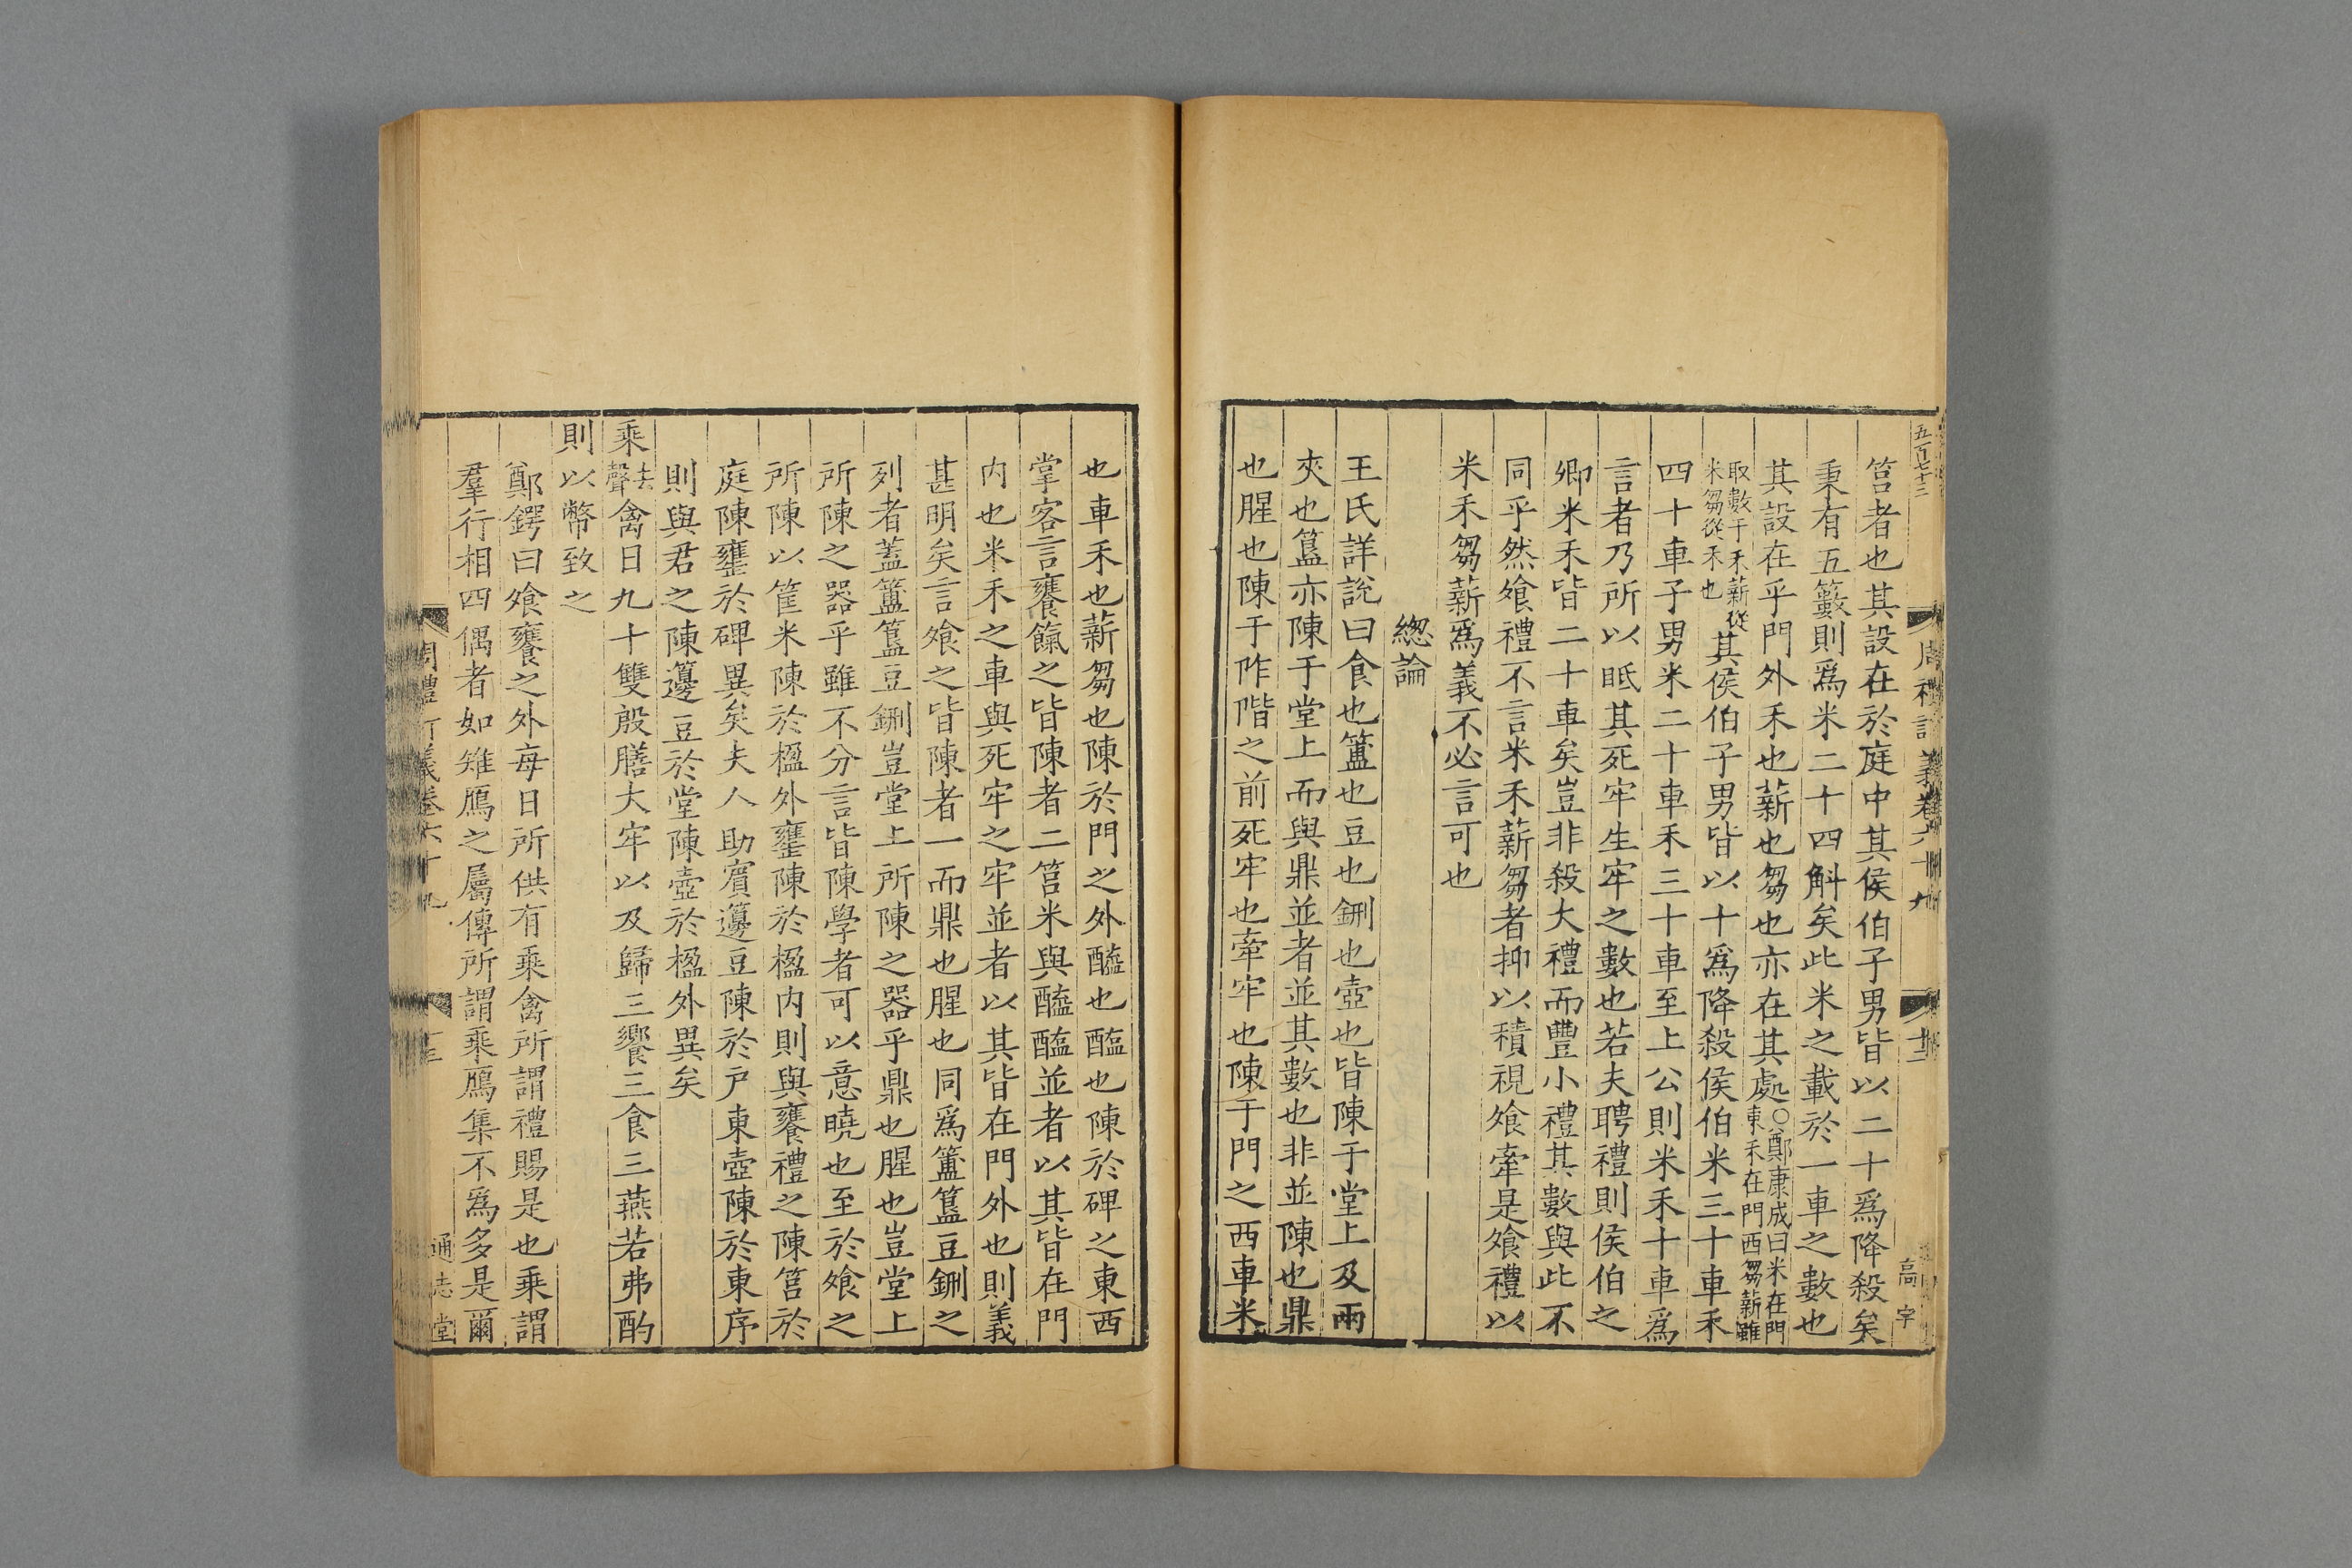 五百七十三
周禮訂義卷六十九
高 字
筥者也其設在於庭中其侯伯子男皆以二十爲降殺矣
秉有五籔則爲米二十四斛矣此米之載於一車之數也
其設在乎門外禾也薪也芻也亦在其處○鄭康成曰米在門東禾在門西芻薪雖
取數于禾薪從米芻從禾也其侯伯子男皆以十爲降殺侯伯米三十車禾
四十車子男米二十車禾三十車至上公則米禾十車爲
言者乃所以眂其死牢生牢之數也若夫聘禮則侯伯之
卿米禾皆二十車矣豈非殺大禮而豐小禮其數與此不
同乎然飧禮不言米禾薪芻者抑以積視飧牽是飧禮以
米禾芻薪爲義不必言可也
緫論
王氏詳說曰食也簠也豆也鉶也壺也皆陳于堂上及兩
夾也簋亦陳于堂上而與鼎並者並其數也非並陳也鼎
也腥也陳于阼階之前死牢也牽牢也陳于門之西車米
也車禾也薪芻也陳於門之外醯也醢也陳於碑之東西
掌客言饔餼之皆陳者二筥米與醯醢並者以其皆在門
内也米禾之車與死牢之牢並者以其皆在門外也則義
甚明矣言飧之皆陳者一而鼎也腥也同爲簠簋豆鉶之
列者蓋簠簋豆鉶豈堂上所陳之器乎鼎也腥也豈堂上
所陳之器乎雖不分言皆陳學者可以意曉也至於飧之
所陳以筐米陳於楹外壅陳於楹内則與饔禮之陳筥於
庭陳壅於碑異矣夫人助賔籩豆陳於戸東壺陳於東序
則與君之陳籩豆於堂陳壺於楹外異矣
乘去聲禽日九十雙殷膳大牢以及歸三饗三食三燕若弗酌
則以幣致之
鄭鍔曰飧饔之外毎日所供有乘禽所謂禮賜是也乘謂
羣行相四偶者如雉鴈之屬傳所謂乘鴈集不爲多是爾
周禮訂義卷六十九
通志堂